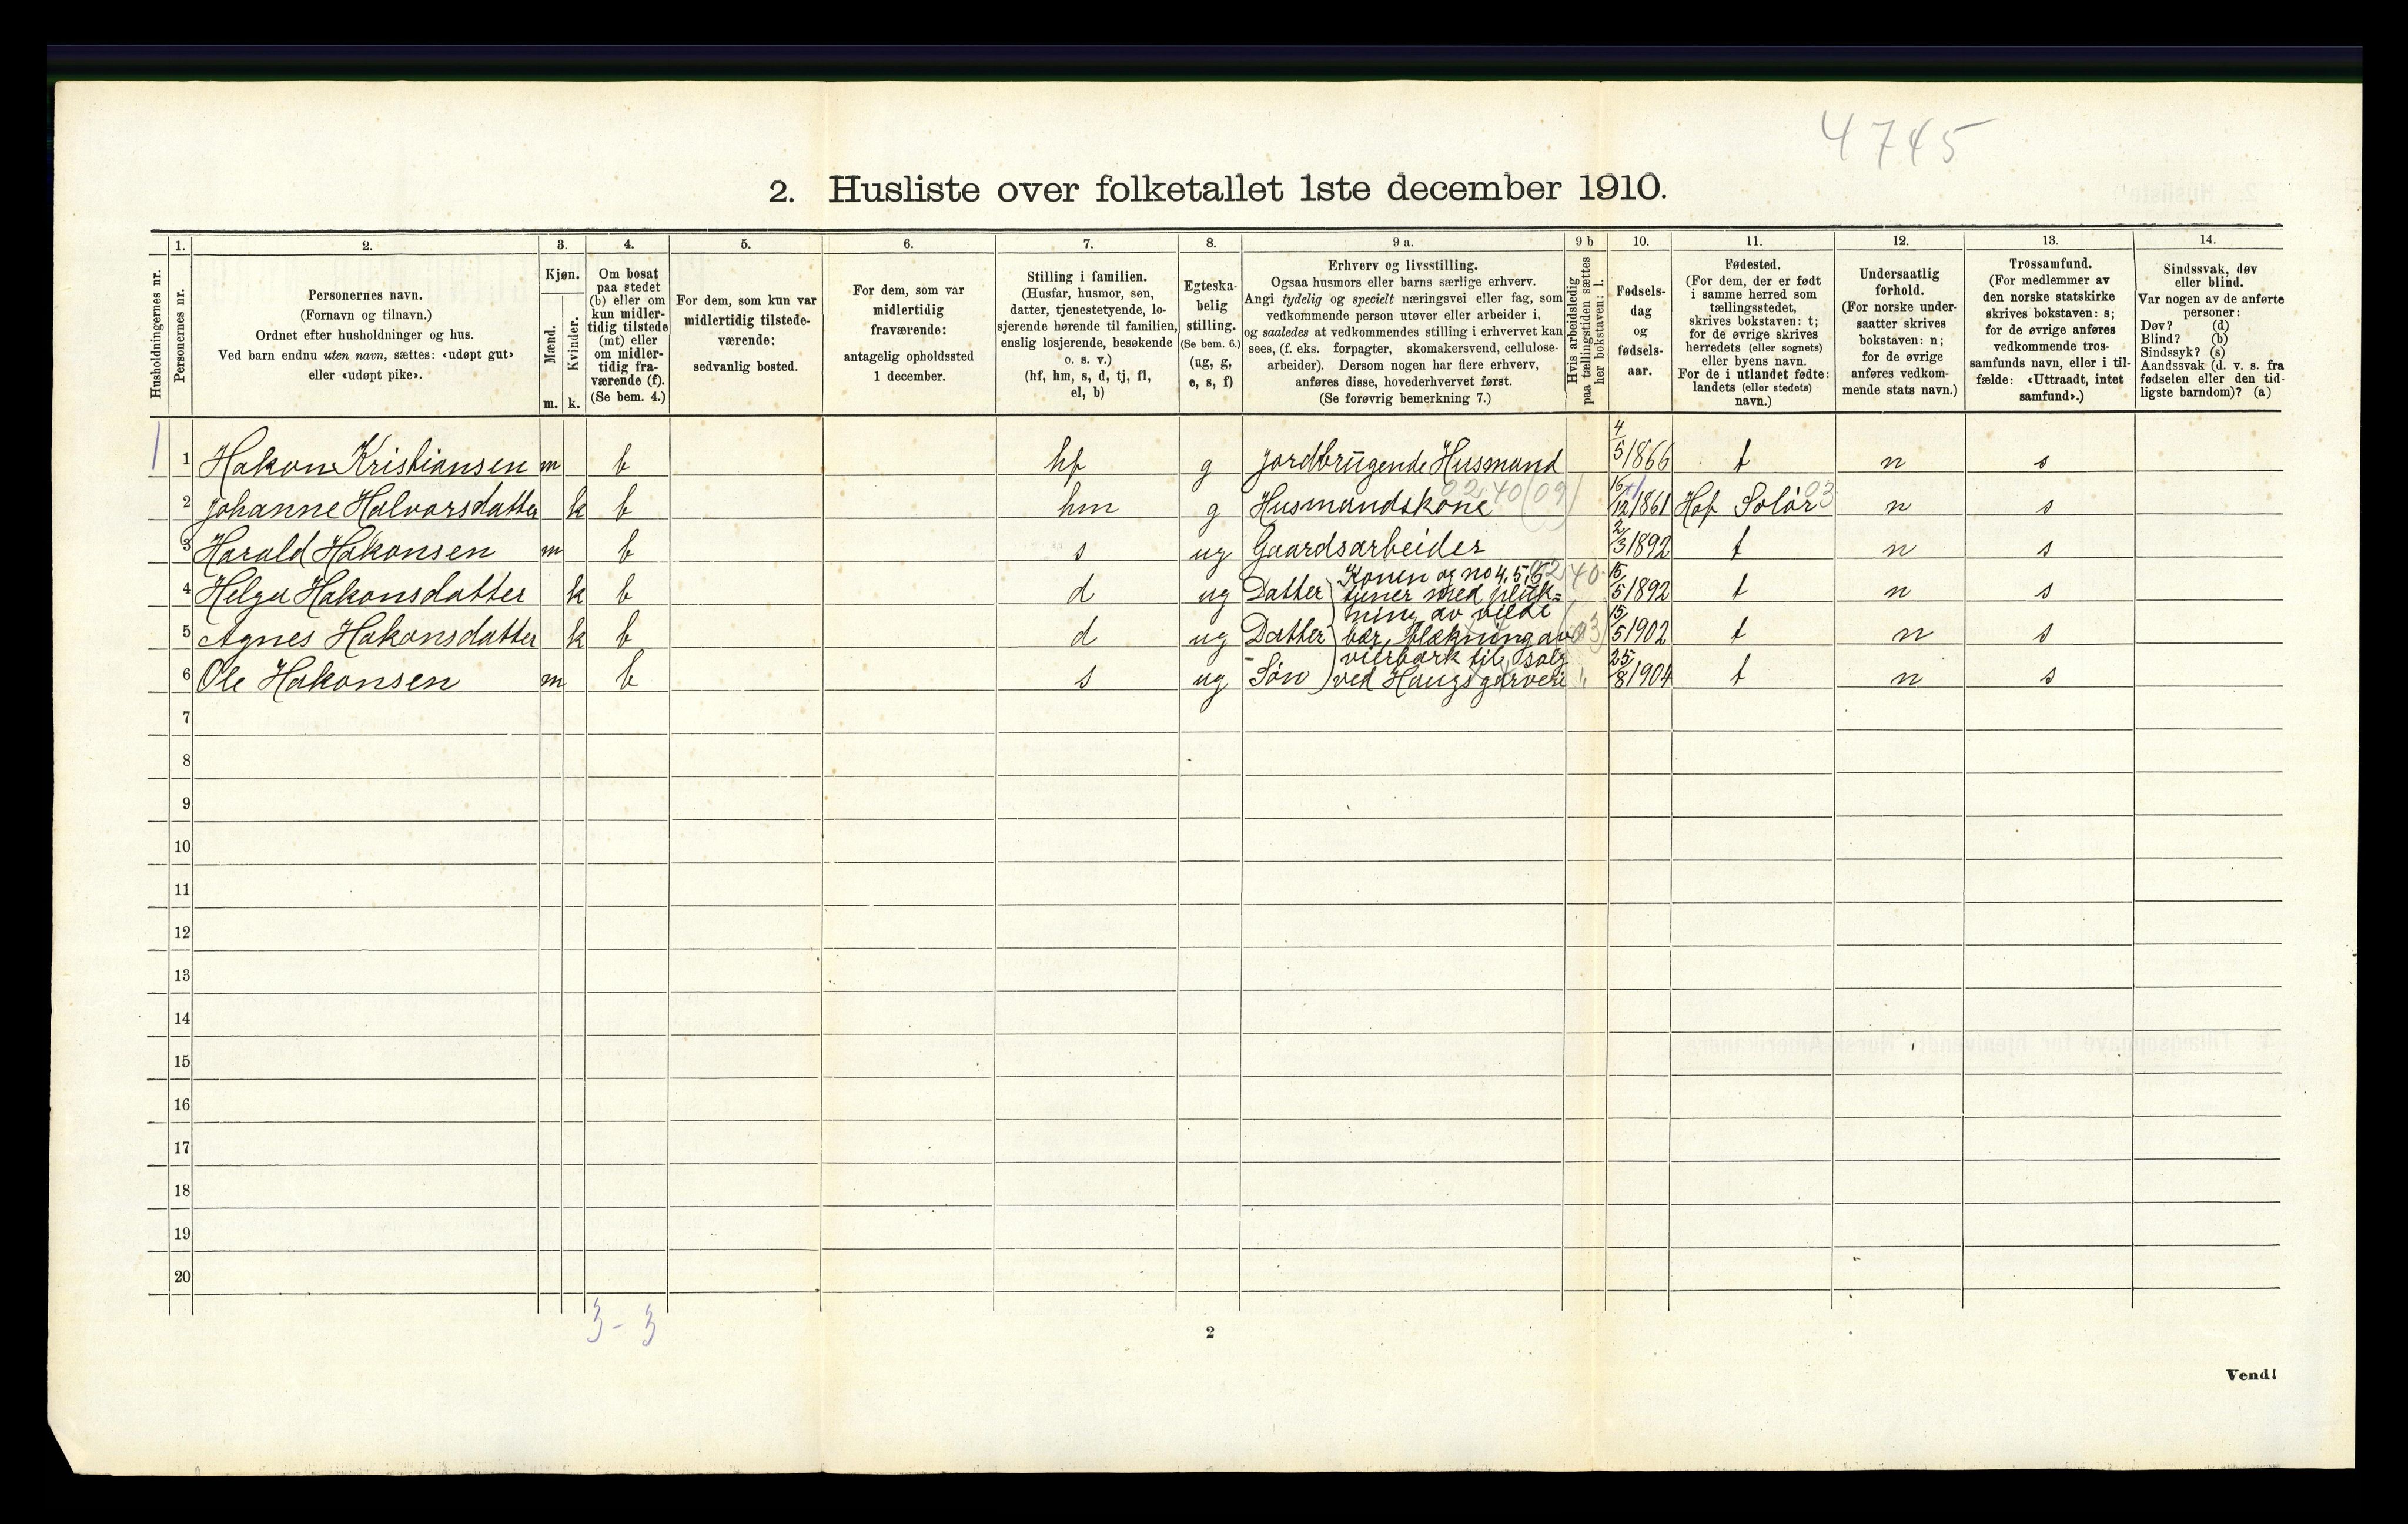 4745
2. Husliste over folketallet 1ste december 1910.
Husholdningernes nr.
1.
Personernes nr.
2.
Personernes navn.
(Fornavn og tilnavn.)
Ordnet efter husholdninger og hus.
Ved barn endnu uten navn, sættes: «udøpt gut»
eller «udøpt pike».
3.
Kjøn.
Mænd.
Kvinder.
m. k.
4.
Om bosat
paa stedet
(b) eller om
kun midler-
tidig tilstede
(mt) eller
om midler-
tidig fra-
værende (f).
(Se bem. 4.)
5.
For dem, som kun var
midlertidig tilstede-
værende:
sedvanlig bosted.
6.
For dem, som var
midlertidig
fraværende:
antagelig opholdssted
1 december.
7.
Stilling i familien.
(Husfar, husmor, søn,
datter, tjenestetyende, lo-
sjerende hørende til familien,
enslig losjerende, besøkende
o. s. v.)
(hf, hm, s, d, tj, fl,
el, b)
8.
Egteska-
belig
stilling.
(Se bem. 6.)
(ug, g,
e, s, f)
9 a.
Erhverv og livsstilling.
Ogsaa husmors eller barns særlige erhverv.
Angi tydelig og specielt næringsvei eller fag, som
vedkommende person utøver eller arbeider i,
og saaledes at vedkommendes stilling i erhvervet kan
sees, (f. eks. forpagter, skomakersvend, cellulose-
arbeider). Dersom nogen har flere erhverv,
anføres disse, hovederhvervet først.
(Se forøvrig bemerkning 7.)
9 b
Hvis arbeidsledig
paa tællingstiden sættes
her bokstaven: l.
10.
Fødsels-
dag
og
fødsels-
aar.
11.
Fødested.
(For dem, der er født
i samme herred som
tællingsstedet,
skrives bokstaven: t;
for de øvrige skrives
herredets (eller sognets)
eller byens navn.
For de i utlandet fødte:
landets (eller stedets)
navn.)
12.
Undersaatlig
forhold.
(For norske under-
saatter skrives
bokstaven: n;
for de øvrige
anføres vedkom-
mende stats navn.)
13.
Trossamfund.
(For medlemmer av
den norske statskirke
skrives bokstaven: s;
for de øvrige anføres
vedkommende tros-
samfunds navn, eller i til-
fælde: «Uttraadt, intet
samfund».)
14.
Sindssvak, døv
eller blind.
Var nogen av de anførte
personer:
Døv? (d)
Blind? (b)
Sindssyk? (s)
Aandssvak (d. v. s. fra
fødselen eller den tid-
ligste barndom)? (a)
1 1 Hakon Kristiansen m b hf g Jordbrugende Husmand 4/5 1866 t n s
02 40 (09) 03
2 Johanne Halvorsdatter k b hm g Husmandskone 16/12 1861 Hof Solør n s
3 Harald Hakonsen m b s ug Gaardsarbeider 2/3 1892 t n s
Konen og no 4, 5, 6
4 Helga Hakonsdatter k b d ug Datter tjener med pluk- 15/5 1892 t n s
ning av vilde
5 Agnes Hakonsdatter k b d ug Datter bær, flækning av 15/5 1902 t n s
vierbark til salg
6 Ole Hakonsen m b s ug Søn ved Haugs garveri 25/8 1904 t n s
7
8
9
10
11
12
13
14
15
16
17
18
19
20
3 - 3
2
Vend!